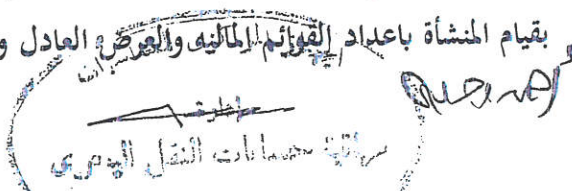 بقيام المنشأة باعداد القوائم المالية والعرض العادل و
إدارة
مراقبة حسابات النقل البحري